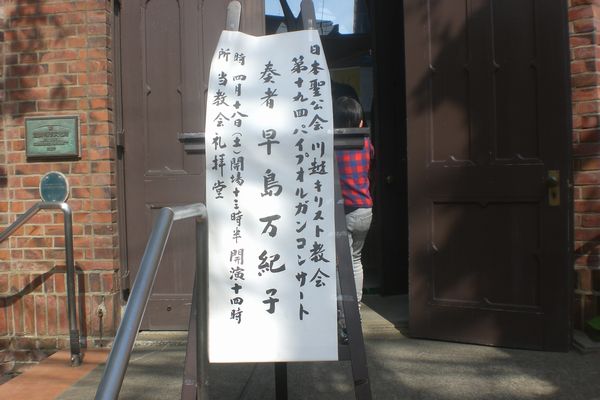 日本聖公会 川越キリスト教会
第十九回 パイプオルガンコンサート
奏者 早島万紀子
時 四月十八日(土)開場十三時半 開演十四時
所 当教会礼拝堂